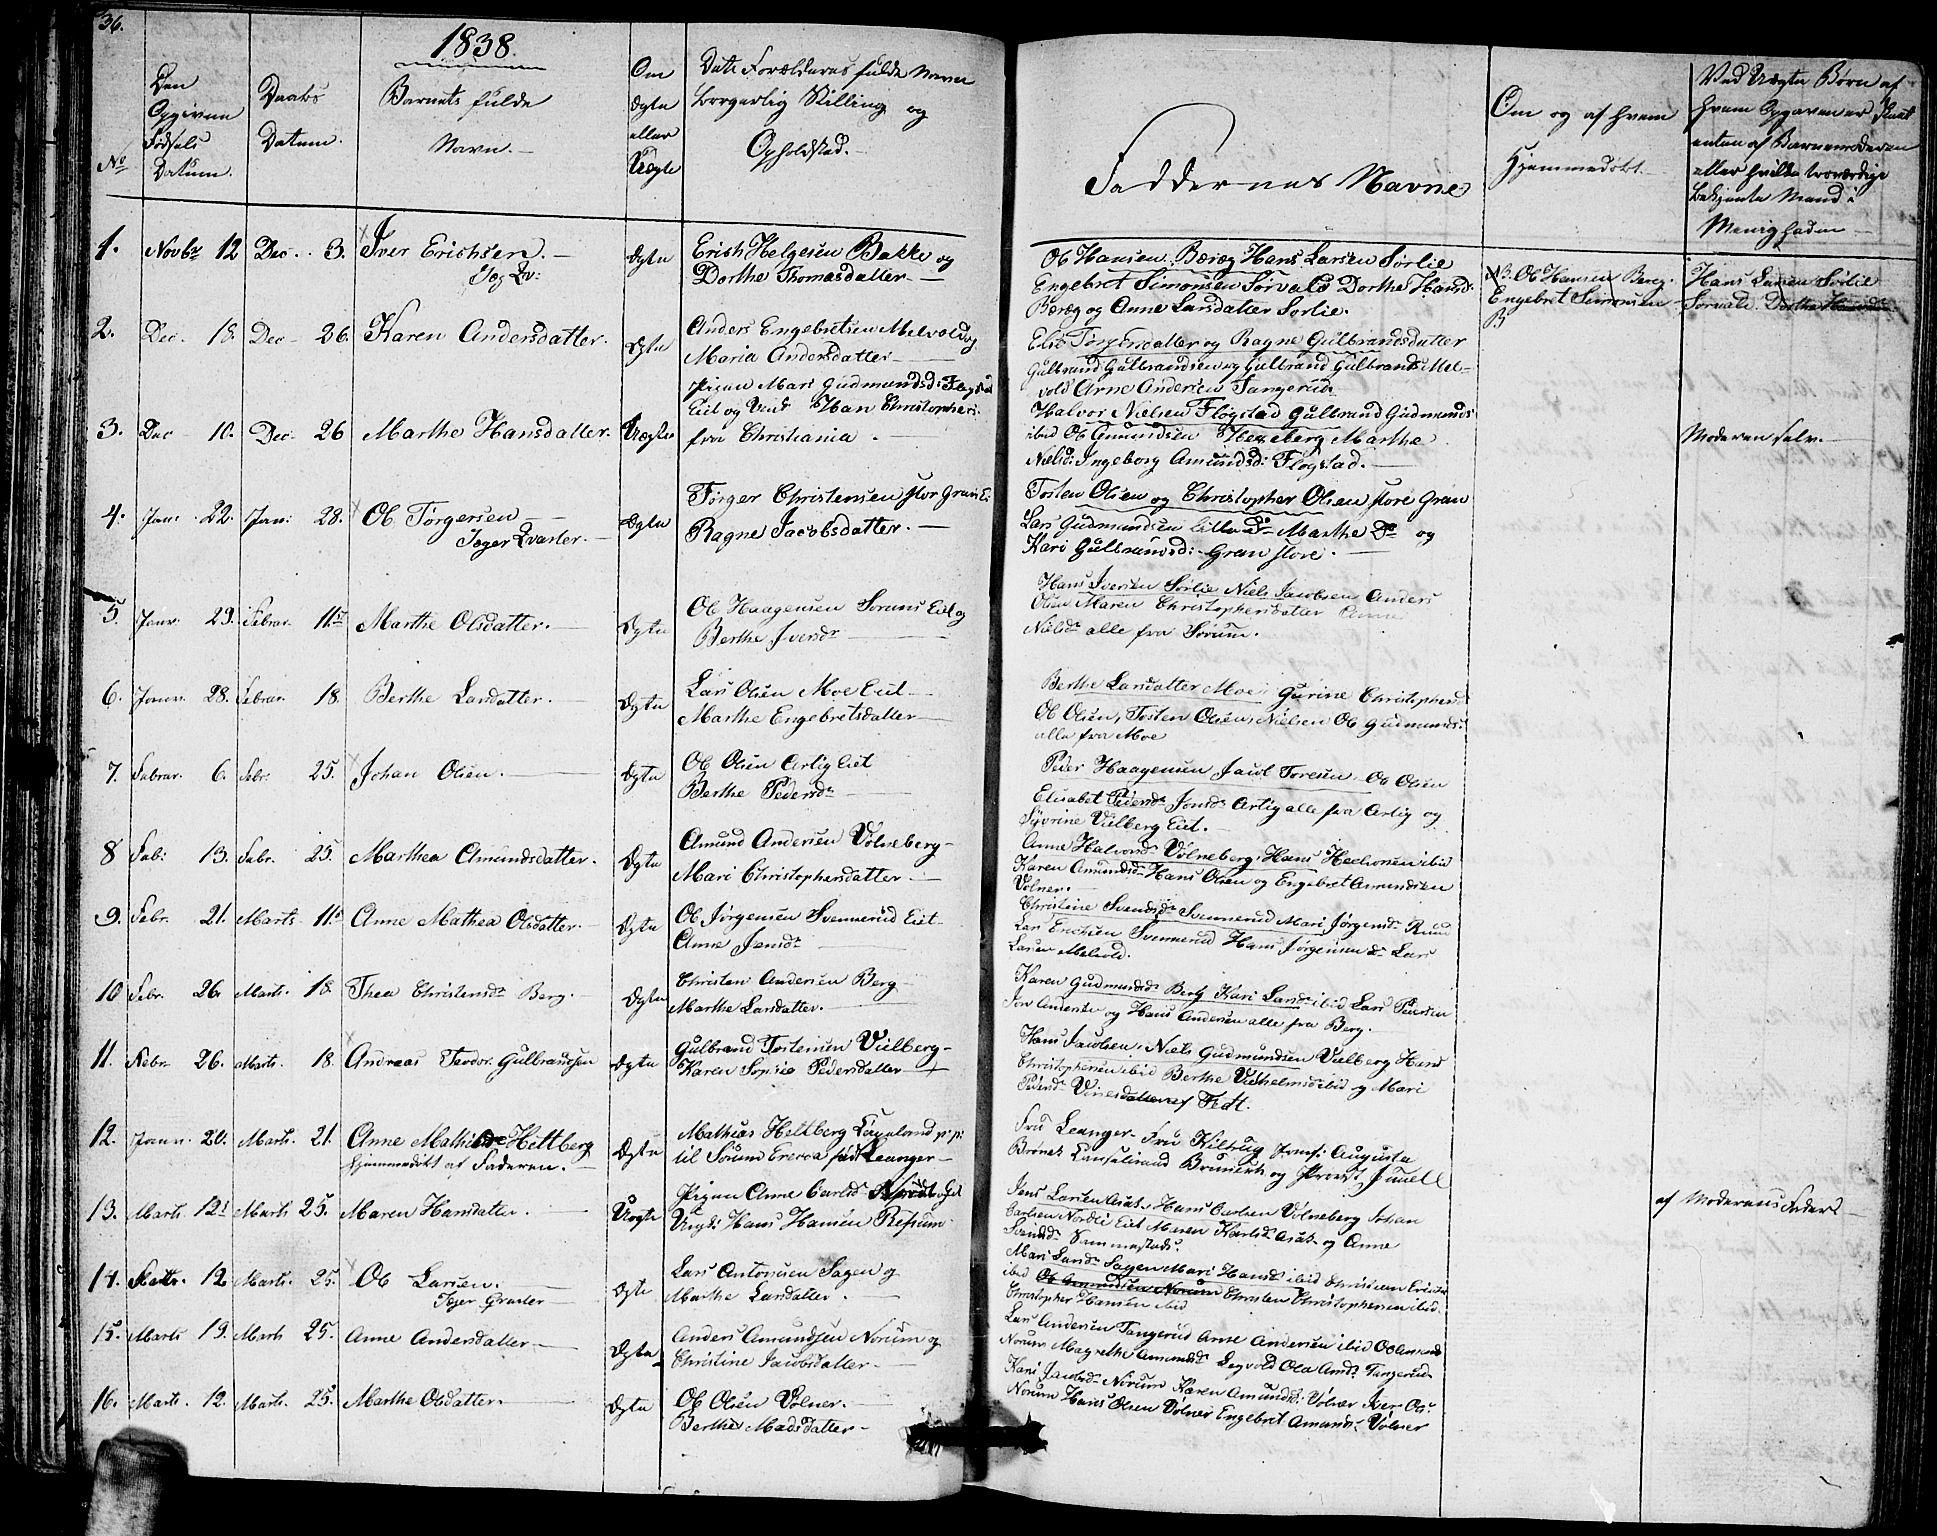 36.
1838.
No
Den Opgivne Fødsels Datum.
Daabs Datum.
Barnets fulde Navn.
Om ægte eller Uægte
Dets Forældres fulde Navne borgerlig Stilling og Opholdsted.
Faddernes Navne
Om og af hvem Hjemmedøbt.
Ved Uægte Børn af hvem Opgaven er skeet enten af Barnemoderen eller hvilke troværdige bekjente Mænd i Menigheden
1. Novbr 12 Dec. 3. Iver Erichsen. ægte Erich Helgesen Bakke og
Dorthe Thomasdatter
Ole Hansen Berg Hans Larsen Sørlie
Engebret Simonsen Sørvald Dorthe Hansd:
Berg og Anne Larsdatter Sørlie.
NB. Ole Hansen Berg. Hans Larsen Sørlie
Engebret Simonsen Sørvald. Dorthe Hansd
2. Dec. 18. Dec 26. Karen Andersdatter. ægte Anders Engebretsen Melvold og
Maria Andersdatter
Gulbrand Gulbrandsen og Gulbrand Gulbrands Mel-
vold Arne Andersen Tangerud
3. Dec 10. Dec. 26 Marthe Hansdatter. Uægte Pigen Mari Gudmundsd: Flogstad
Eiet og Hans Christophers:
fra Christiania.
Halvor Nielsen Flogstad Gulbrand Gudmunds
ibid Ole Amundsen Hexeberg Marthe
Nielsd: Ingeborg Amundsd: Flogstad.
Moderen selv.
4. Jan: 22. Jan: 28. Ole Torgersen ægte Torger Christensen stor Gran E.
Jæger Qvarter.
Ragne Jacobsdatter.
Tosten Olsen og Christopher Olsen store Gran
Lars Gudmundsen lille do Marthe do og
Kari Gulbrandsd: Gran store.
5. Janr. 29. Febrar. 11te Marthe Olsdatter. ægte Ole Haagensen Sørums Eiet og
Berthe Iversdr
Hans Iversen Sørlie Niels Jacobsen Anders
Olsen Maren Christophersdatter Anne
Nielsdr alle fra Sørum.
6. Janr. 28. Febrar. 18. Berthe Larsdatter. ægte Lars Olsen Moe Eiet
Marthe Engebretsdatter
Berthe Larsdatter Moe Gurine Christophersd
Ole Olsen, Tosten Olsen, Nielsen Ole Gudmunds:
alle fra Moe
7. Febrar. 6. Febr. 25. Johan Olsen. ægte Ole Olsen Arlig Eiet
Berthe Pedersdr
Peder Haagensen Jacob Toresen Ole Olsen
Elisabet Pedersdr Jensdr Arlig alle fra Arlig og
Syvrine Vilberg Eiet.
8 Feb: 13. Febr. 25. Marthea Amundsdatter. ægte Amund Andersen Vølneberg
Mari Christophersdatter
Anne Halvorsd Vølneberg, Hans ibid
Karen Amundsdr Hans Olsen og Engebret Amundsen
Vølner.
9. Febr. 21. Marts 11. Anne Mathea Olsdatter. ægte Ole Jørgensen Svennerud Eiet
Anne Jensdr
Christine Svendsdr Svennerud Mari Jørgensdr Ruud
Lars Erichsen Svennerud Hans Jørgensen do Lars
Larsen Melvold.
10 Febr. 26. Marts. 18. Thea Christensdr Berg. ægte Christen Andersen Berg
Marthe Larsdatter.
Karen Gudmundsdr Berg Kari Larsdr ibid Lars Pedersen
Andersen og Hans Andersen alle fra Berg.
11. Febr 26. Marts. 18. Andreas Teodor. Gulbrandsen ægte Gulbrand Tostensen Vilberg
Karen Sophie Pedersdatter
Hans Jacobsen, Niels Gudmundsen Vilberg Hans
Christophersen ibid Berthe Vilhelmsd ibid og Mari
12. Janr. 20. Marts. 21. Anne Mathilde Heltberg ægte Mathias Heltberg Capeland p: p:
hjemmedøbt af Faderen.
til Sørum født Leanger
Fru Leanger Fru Kiltrug Jomf: Augusta
og Provst Juuell
13. Marts. 12. Marts 25. Maren Hansdatter. Uægte Pigen Anne Carlsd
Ungk: Hans Hansen Refsum
Jens Larsen Asak Hans Carlsen Vølneberg Johan
Carlsen Nordlie Eiet Maren Karlsdr Asak og Anne
af Moderens Fader
14. Febr. 12. Marts. 25. Ole Larsen. ægte Lars Antonsen Sagen og
Marthe Larsdatter.
Mari Larsdr Sagen Mari Hansdr ibid Christian
ibid Ole Amundsen Norum Christen Christophersen ibid.
Christopher Hansen ibid
15. Marts 19. Marts 25. Anne Andersdatter. ægte Anders Amundsen Norum og
Christine Jacobsdatter.
Lars Andersen Tangerud Arne Andersen ibid Ole Amunds
Norum Magrethe Amundsdr Legvold Ola Amds. Tangerud
16. Marts. 12. Marts. 25. Marthe Olsdatter. ægte Ole Olsen Vølner.
Berthe Madsdatter
Kari Jacobsdr Norum Karen Amundsdr. Vølner Iver Ols:
Norum Hans Olsen Vølner Engebret Amunds. Vølner